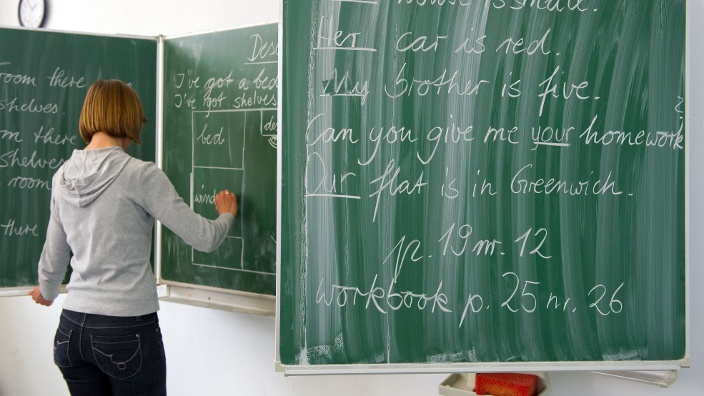 room there
shelves.
m there
Shelves
room
there
Des
I've got a bed
I've got shelves
bed
des
wind
house is small.
Her car is red.
My brother is five.
Can you give me your homework
?
Our flat is in Greenwich.
p. 19 nr. 12
workbook p. 25 nr. 26